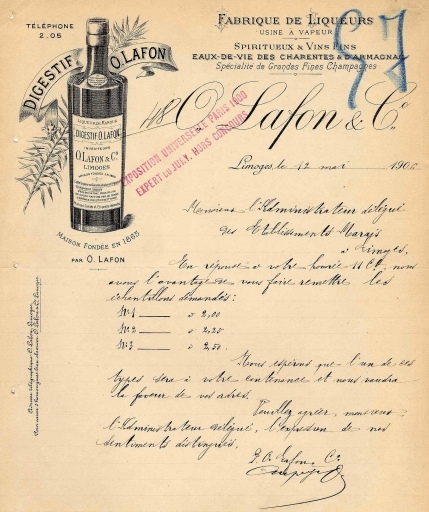 TÉLÉPHONE
2.05
FABRIQUE DE LIQUEURS
USINE A VAPEUR
SPIRITUEUX & VINS FINS
EAUX-DE-VIE DES CHARENTES & D'ARMAGNAC
Spécialité de Grandes Fines Champagnes
DIGESTIF O. LAFON
DIGESTIF O. LAFON
O. LAFON & Cº
LIMOGES
MAISON FONDÉE EN 1865
PAR O. LAFON
O. Lafon & Cº
EXPOSITION UNIVERSELLE PARIS 1900
EXPERT du JURY, HORS CONCOURS
Limoges, le 12 mai 190
Monsieur l'Administrateur délégué
des Etablissements Marais
à Limoges.
En réponse à votre honorée 11 Ct. nous
avons l'avantage de vous faire remettre les
échantillons demandés :
Nº1 — à 2,00
Nº2 — à 2,25
Nº3 — à 2,50.
Nous espérons que l'un de ces
types sera à votre convenance et nous vaudra
la faveur de vos ordres.
Veuillez agréer, monsieur
l'Administrateur délégué, l'expression de nos
sentiments distingués.
O. Lafon, Cº